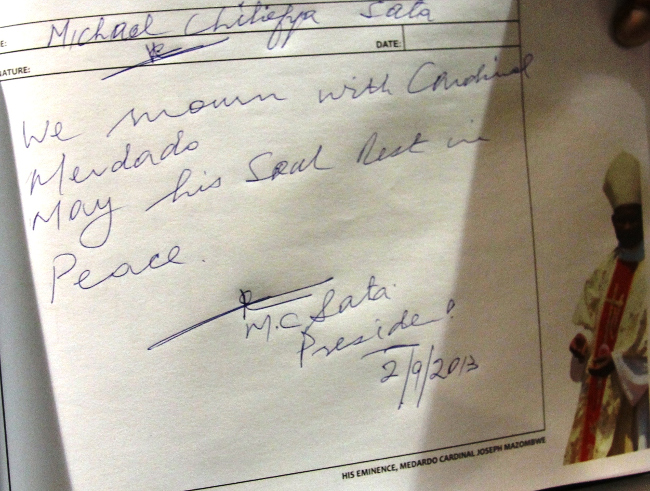 E: Michael Chilufya Sata
DATE:
NATURE:
We mourn with Cardinal
Merdado
May his Soul Rest in
Peace.
M.C Sata
President
2/9/2013
HIS EMINENCE, MEDARDO CARDINAL JOSEPH MAZOMBWE